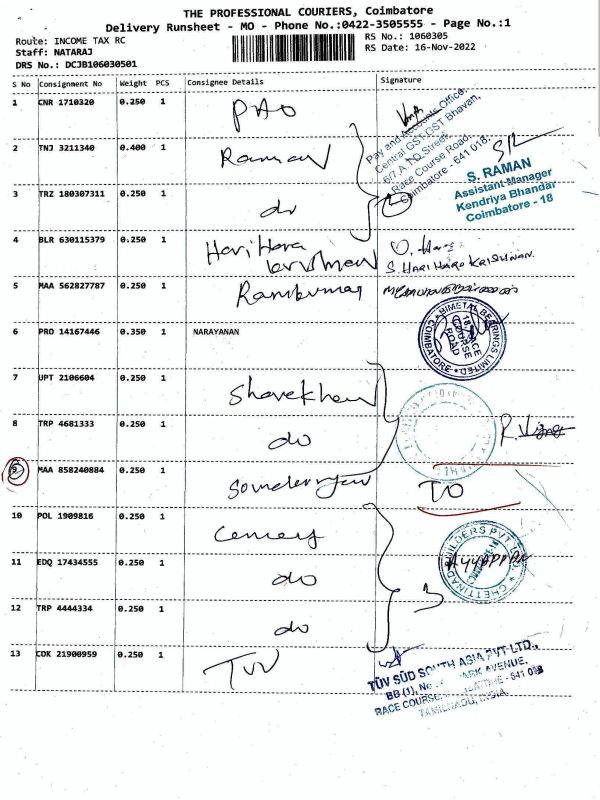 THE PROFESSIONAL COURIERS, Coimbatore
Delivery Runsheet - MO - Phone No.:0422-3505555 - Page No.:1
Route: INCOME TAX RC
RS No.: 1060305
Staff: NATARAJ
RS Date: 16-Nov-2022
DRS No.: DCJB106030501
S No Consignment No Weight PCS Consignee Details Signature
1 CNR 1710320 0.250 1 PAO
Pay and Accounts Office,
Central GST, GST Bhavan,
6/7 A.T.D. Street,
Race Course Road,
Coimbatore - 641 018.
2 TNJ 3211340 0.400 1 Raman
S. RAMAN
Assistant Manager
Kendriya Bhandar
Coimbatore - 18
3 TRZ 180307311 0.250 1 do
4 BLR 630115379 0.250 1 Hari Hara
krishnan
S. HARI HARA KRISHNAN.
5 MAA 562827787 0.250 1 Ramkumar
6 PRO 14167446 0.350 1 NARAYANAN
BIMETAL BEARINGS LIMITED
COIMBATORE
RACE
COURSE
ROAD
7 UPT 2106604 0.250 1
8 TRP 4681333 0.250 1 do
9 MAA 858240884 0.250 1
TO
10 POL 1909816 0.250 1
CHETTINAD BUILDERS PVT LTD.
AYYAPPAN
11 EDQ 17434555 0.250 1 do
3
12 TRP 4444334 0.250 1 do
13 COK 21900959 0.250 1 TUV
TÜV SÜD SOUTH ASIA PVT LTD.,
BB (1), No PARK AVENUE,
RACE COURSE, - 641 018
TAMILNADU, INDIA.